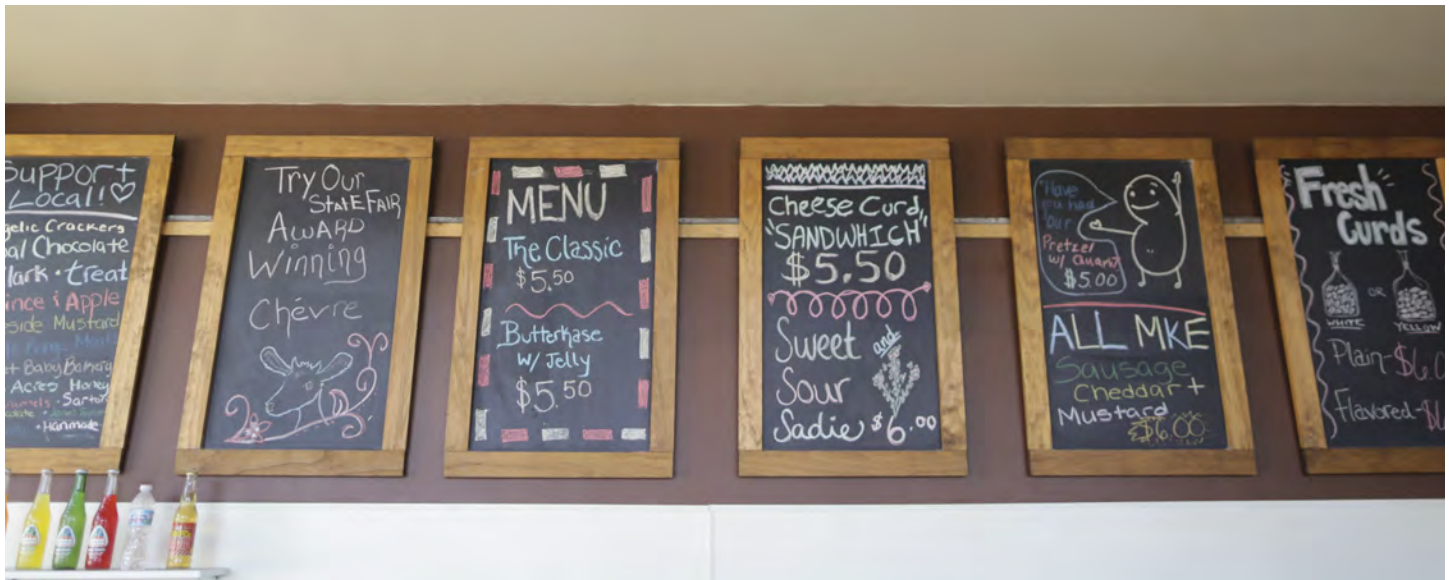 Support
Local!
Crackers
Chocolate
Clark • treat
Quince & Apple
Mustard
Baby Bakery
Acres Honey
• Sarto
• Hanmade
Try Our
State Fair
Award
Winning
Chévre
MENU
The Classic
$5.50
Butterkase
w/ Jelly
$5.50
Cheese Curd
"SANDWHICH"
$5.50
Sweet and
Sour
Sadie $6.00
"Have
you had
Our
Pretzel
w/ Chandt
$5.00
ALL MKE
Sausage
Cheddar +
Mustard
$6.00
Fresh
Curds
OR
WHITE
YELLOW
Plain-
Flavored-